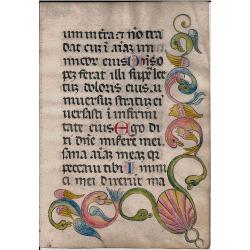 um intra et no tra
dat cuz i aiaz ini
micor eius Dominus
opz ferat illi super lec
tuz doloris eius. u
niuersuz stratuz ei
uersasti i infirmi
tate eius Ego di
xi dne miserere mei
sana aiaz meaz q
peccaui tibi Inimi
ci mei dixerut ma